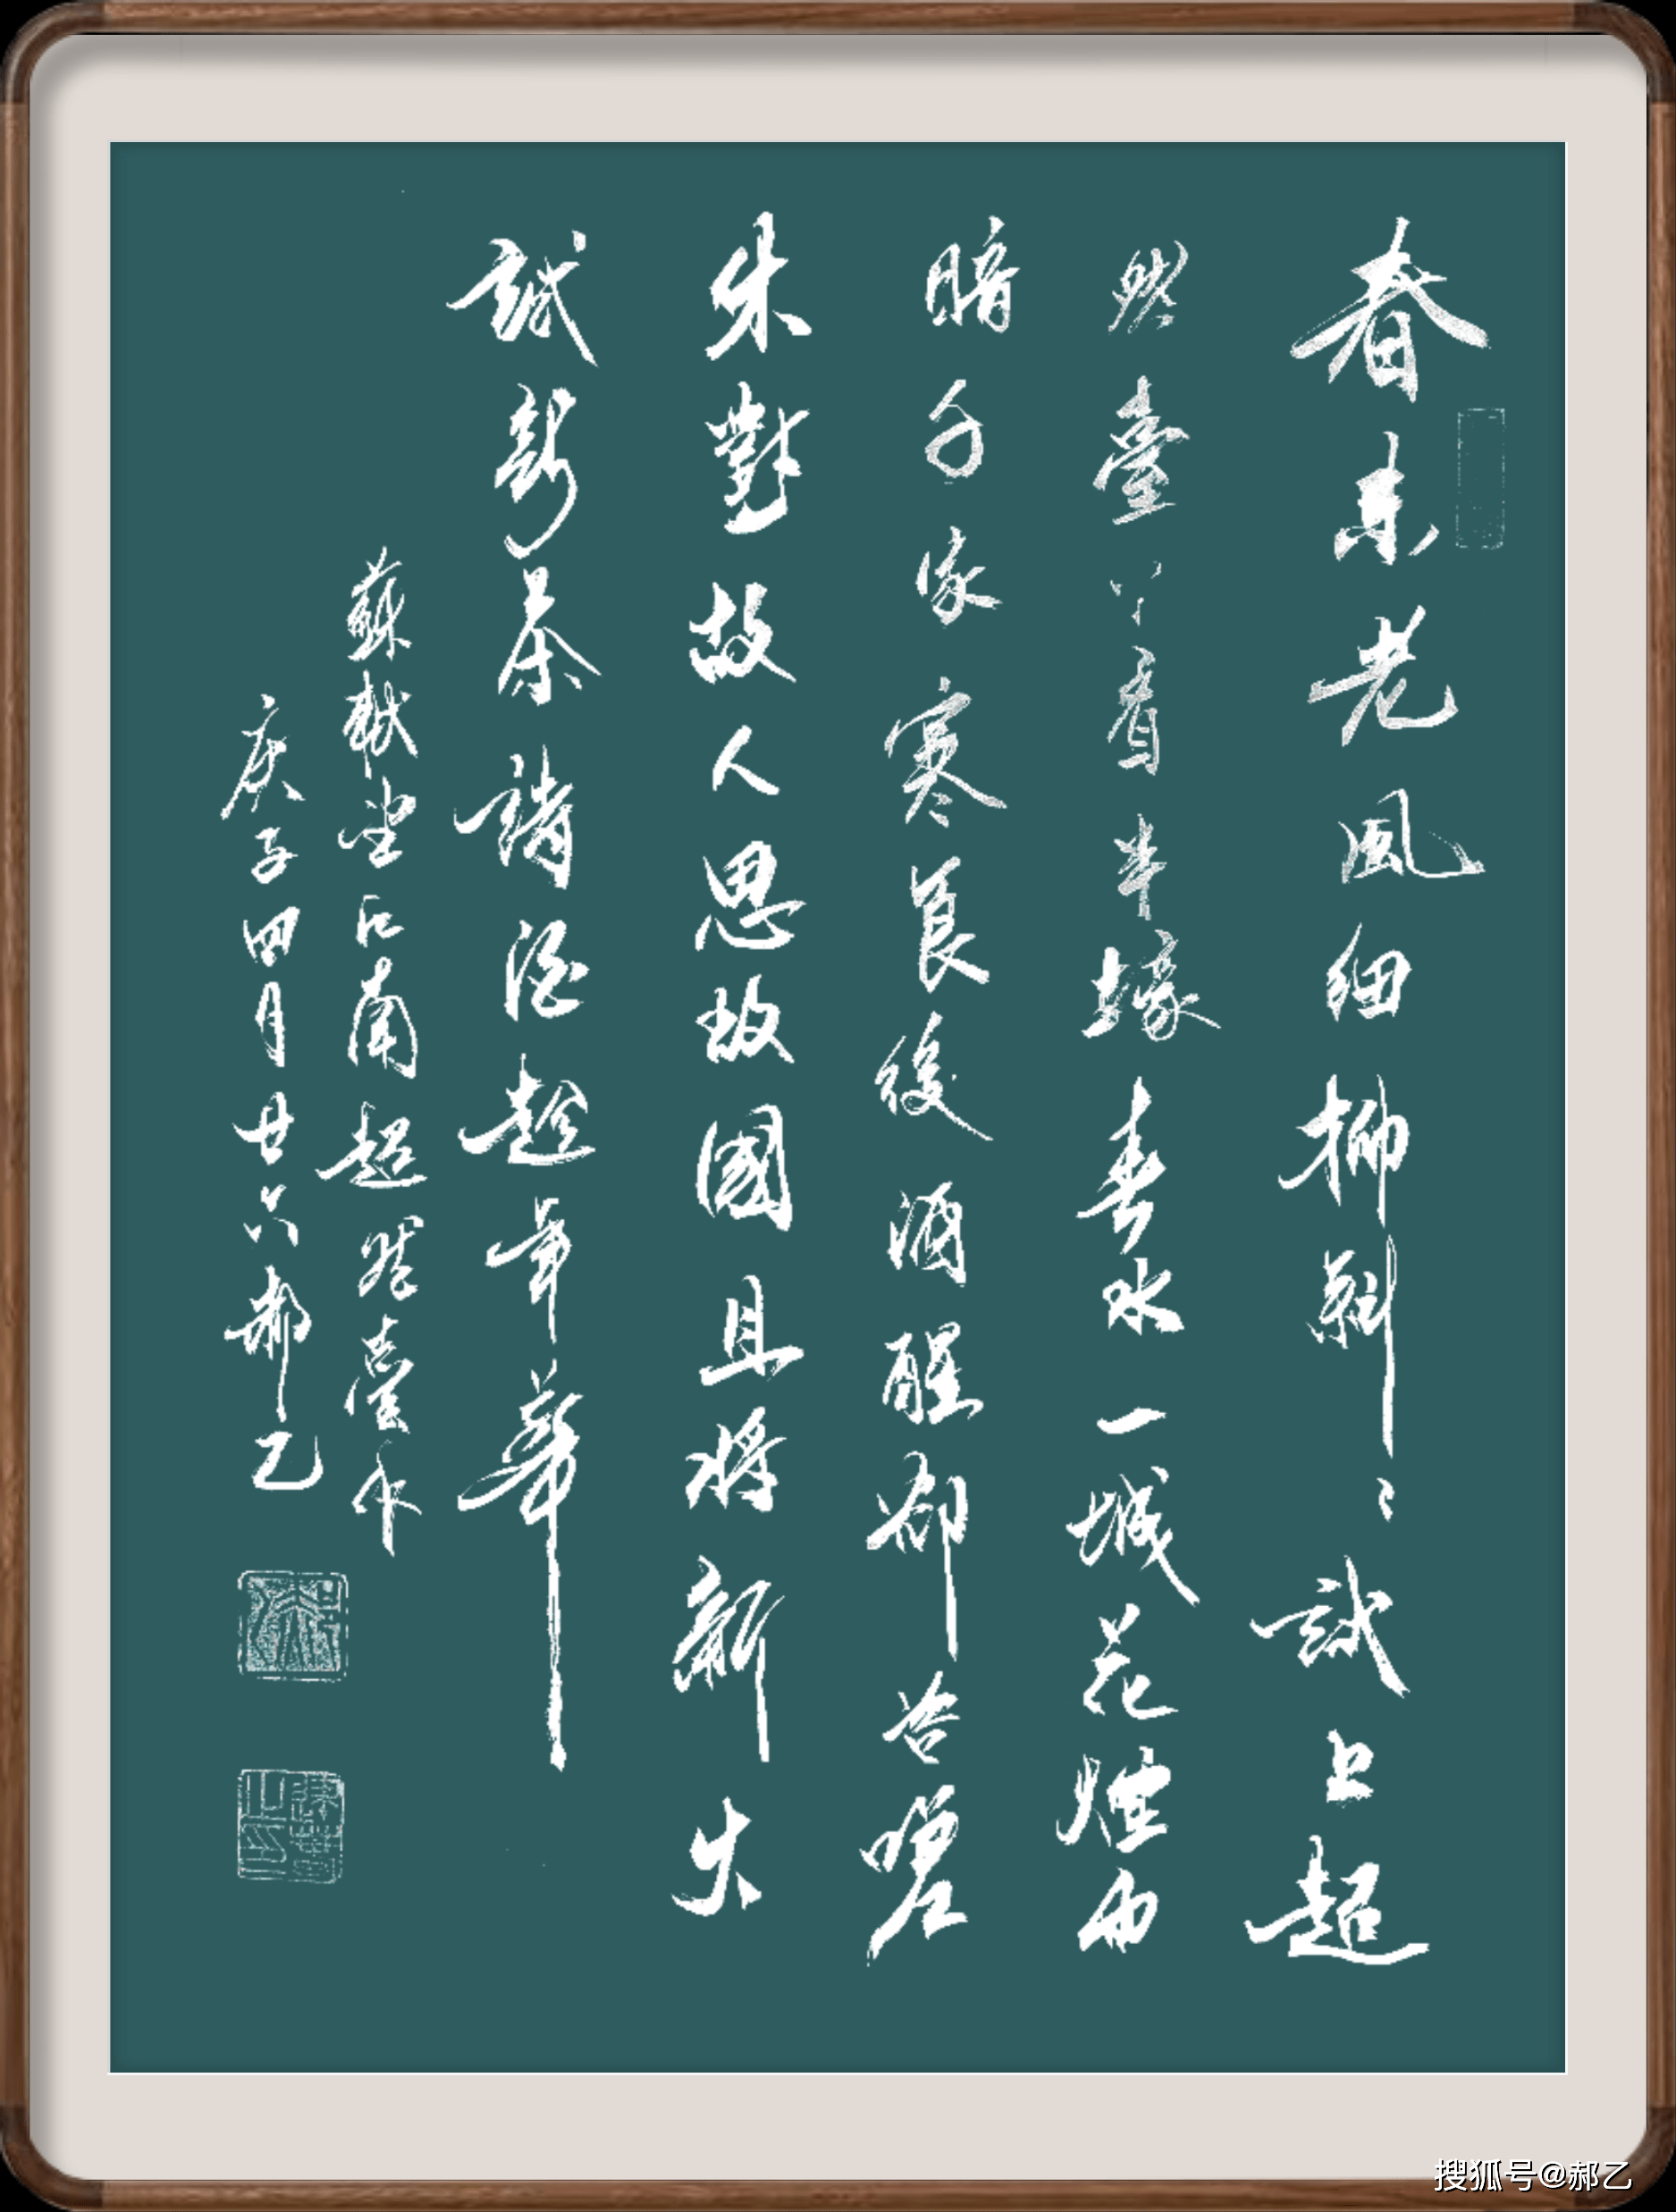 春未老風細柳斜〻試上超
然臺上看半壕春水一城花煙雨
暗千家寒食後酒醒卻咨嗟
休對故人思故國且將新火
試新茶詩酒趁年華
蘇軾望江南超然臺作
庚子四月廿六郝乙
搜狐号@郝乙